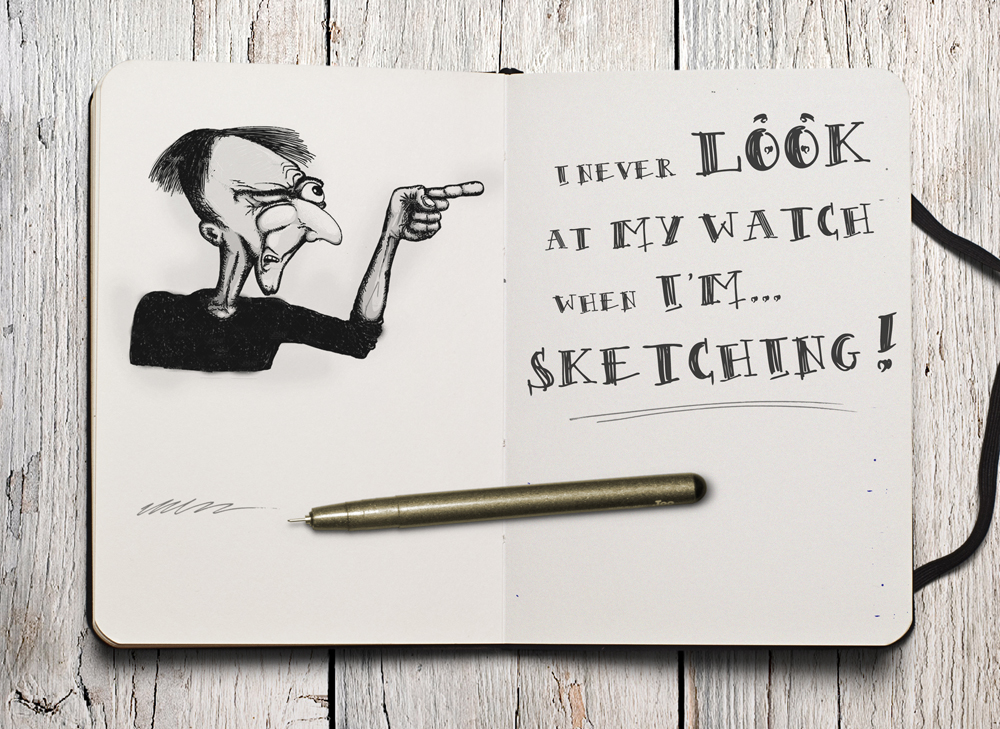 I NEVER LOOK
AT MY WATCH
WHEN I'M...
SKETCHING!